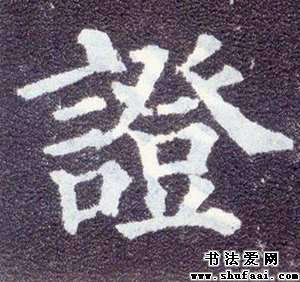 證
书法爱网
www.shufaai.com